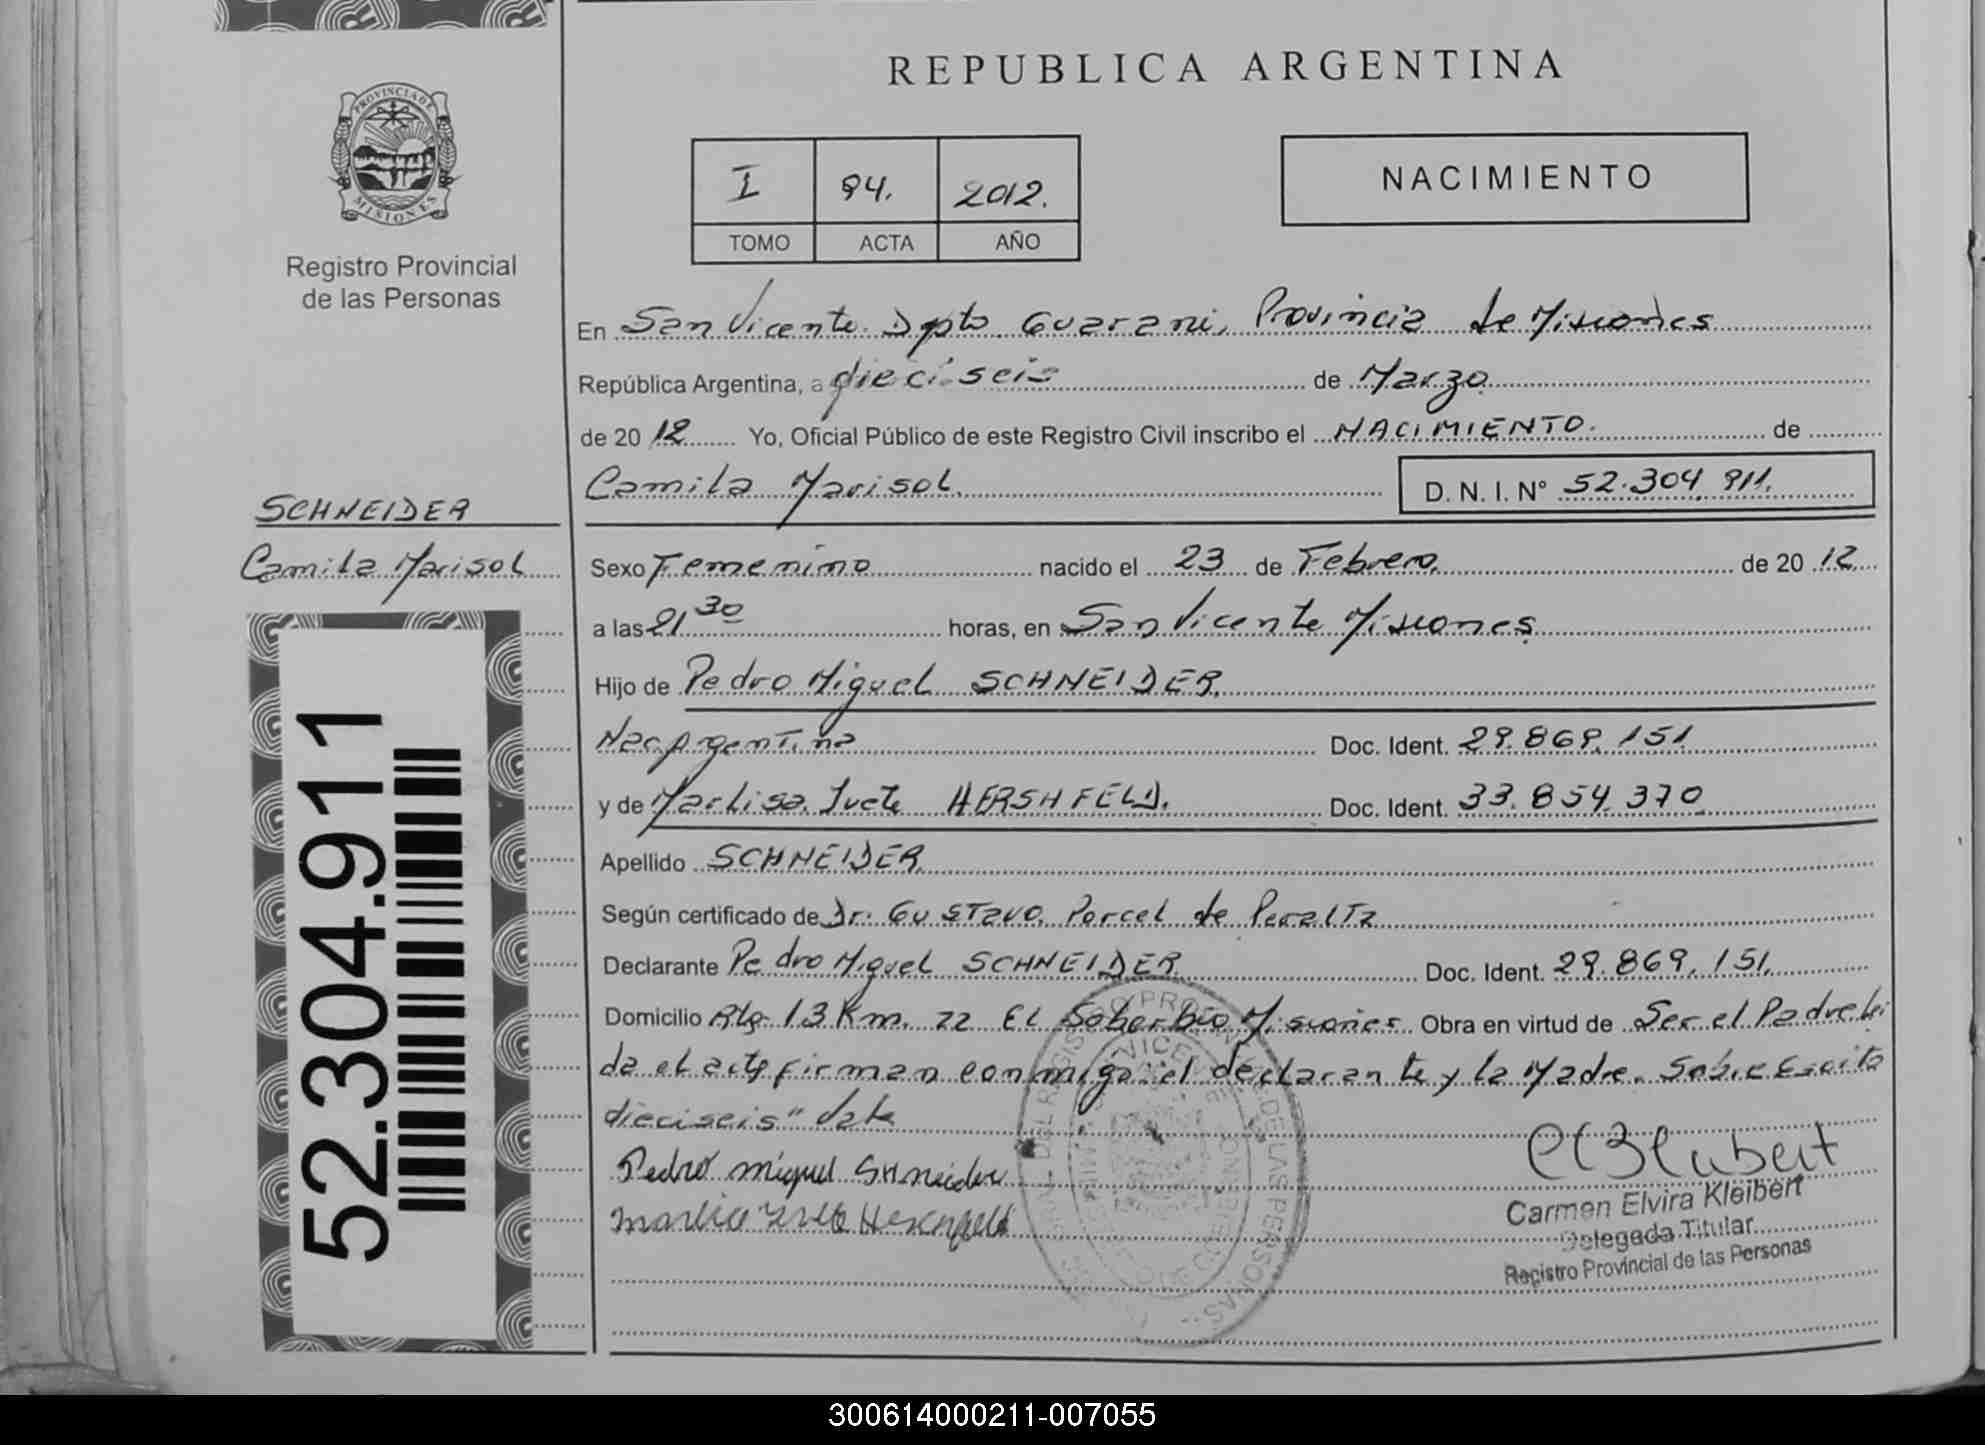 REPUBLICA ARGENTINA
PROVINCIA DE
MISIONES
Registro Provincial
de las Personas
I 94. 2012.
TOMO ACTA AÑO
NACIMIENTO
En San Vicente Dpto Guarani, Provincia de Misiones
República Argentina, a dieciseis de Marzo
de 2012 Yo, Oficial Público de este Registro Civil inscribo el NACIMIENTO. de
Camila Marisol. D. N. I. Nº 52.304.911.
SCHNEIDER
Camila Marisol
Sexo Femenino nacido el 23 de Febrero. de 2012
a las 21 30 horas, en San Vicente Misiones
Hijo de Pedro Miguel SCHNEIDER.
Nac Argentina Doc. Ident. 29.869.151
y de Marlisa Ivete HERSHFELD. Doc. Ident. 33.854.370
Apellido SCHNEIDER.
Según certificado de Dr: Gustavo Porcel de Peralta
Declarante Pedro Miguel SCHNEIDER Doc. Ident. 29.869.151.
Domicilio Km. 22 El Soberbio Misiones Obra en virtud de Ser el Padre lei
da el acta firman conmigo el declarante y la Madre. Sobre Escrito
dieciseis" Vale
Pedro miguel
Carmen Elvira Kleibert
Delegada Titular
Registro Provincial de las Personas
52.304.911
300614000211-007055